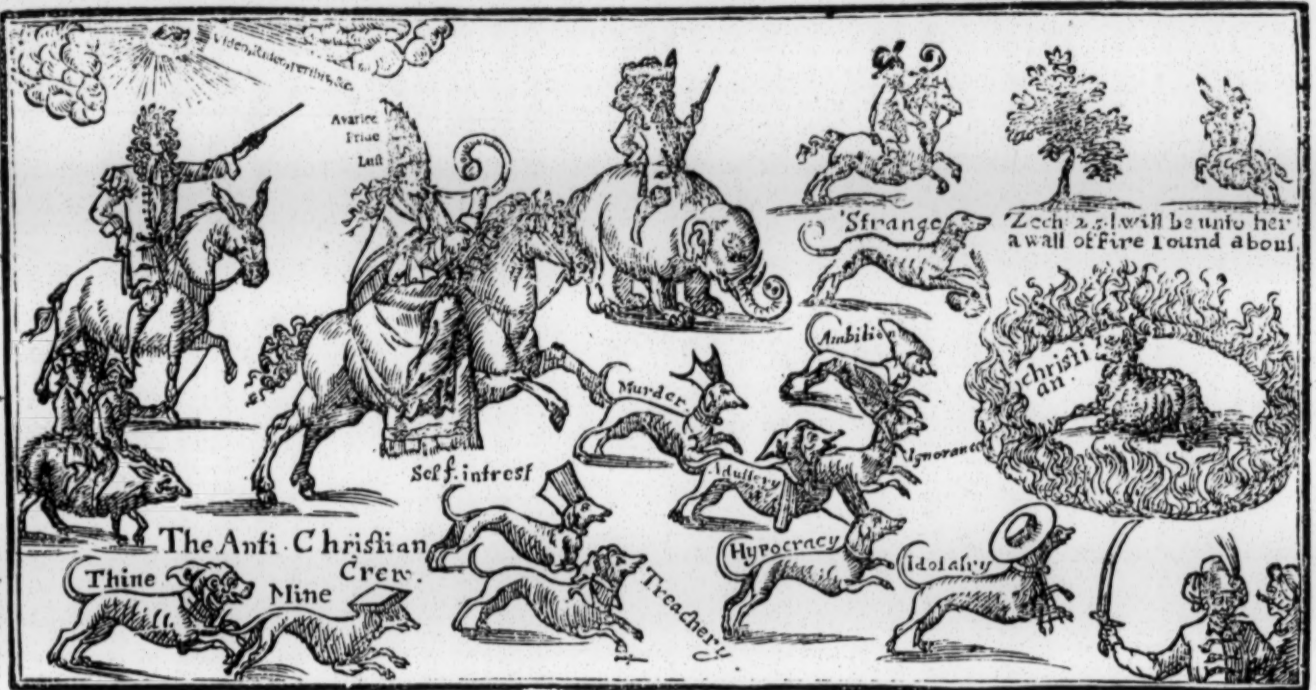 Avarice
Pride
Lust
Strange
Zech: 2.5. I will be unto her
a wall of Fire round about
Ambitiō
christi
an.
Murder
Ignorance
Idultery
Self-intrest
The Anti Christian
Crew.
Hypocracy
Idolatry
Thine
Mine
Treachery